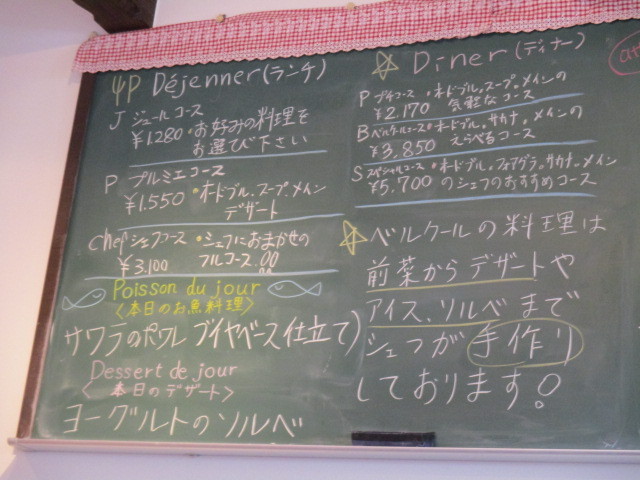 Déjenner(ランチ)
J ジュールコース
¥1.280・お好みの料理を
お選び下さい
P プルミエコース
¥1.550・オードブル。スープ。メイン
デザート
chef シェフコース・シェフにおまかせの
¥3.100 フルコース。
Poisson du jour
〈本日のお魚料理〉
サワラのポワレ ブイヤベース仕立て)
Dessert de jour
〈本日のデザート〉
ヨーグルトのソルベ
Diner(ディナー)
P プチコース・オードブル。スープ。メインの
¥2.170 気軽なコース
B ベルクールコース・オードブル。サカナ。メインの
¥3,850 えらべるコース
S スペシャルコース・オードブル。フォアグラ。サカナ。メイン
¥5.700 のシェフのおすすめコース
ベルクールの料理は
前菜からデザートや
アイス、ソルベまで
シェフが手作り
しております!